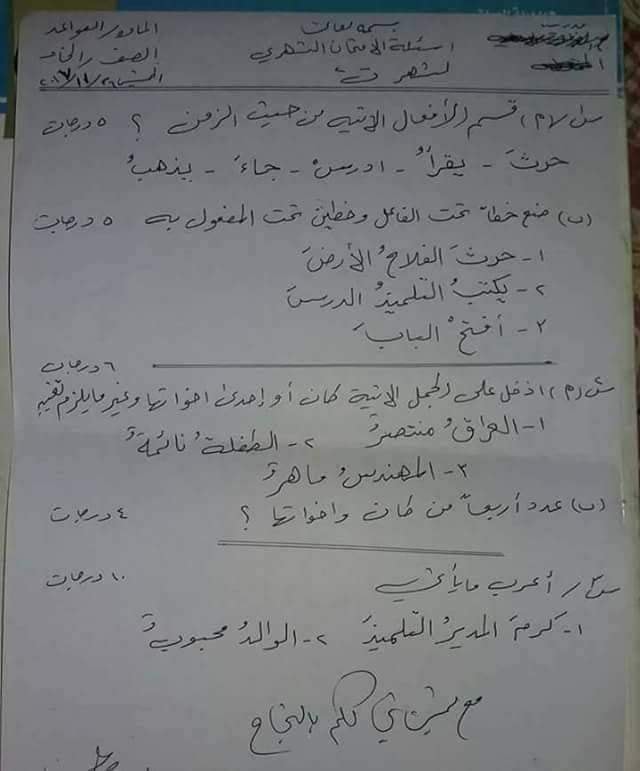 بسمه تعالى
المادة/القواعد
اسئلة الامتحان الشهري
الصف/الخامس
لشهر ت٢
س١/ (م) قسم الأفعال الاتيه من حيث الزمن ؟ ٥ درجات
حرثَ - يقرأُ - ادرسْ - جاءَ - يذهبُ
(ب) ضع خطاً تحت الفاعل وخطين تحت المفعول به ٥ درجات
١- حرثَ الفلاحُ الأرضَ
٢- يكتبُ التلميذُ الدرسَ
٣- أفتحْ البابَ
٦ درجات
س٢/ (م) ادخل على الجمل الاتية كان أو إحدى اخواتها وغير ما يلزم تغييره
١- العراقُ منتصرٌ ٢- الطفلةُ نائمةٌ
٣- المهندسُ ماهرٌ
(ب) عدد أربعاً من كان واخواتها ؟ ٤ درجات
س٣/ أعرب ما يأتي ١٠ درجات
١- كرمَ المديرُ التلميذَ ٢- الوالدُ محبوبٌ
مع تمنياتي لكم بالنجاح